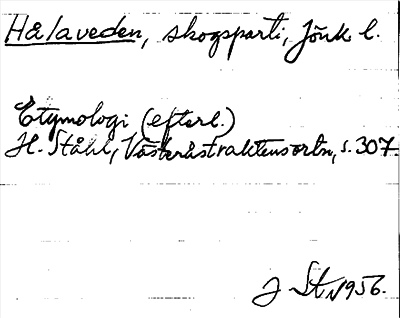 Hålaveden, skogsparti, Jönk l.
Etymologi (efterl.)
H. Ståhl, Västeråstraktens ortn, s. 307.
J St 1956.